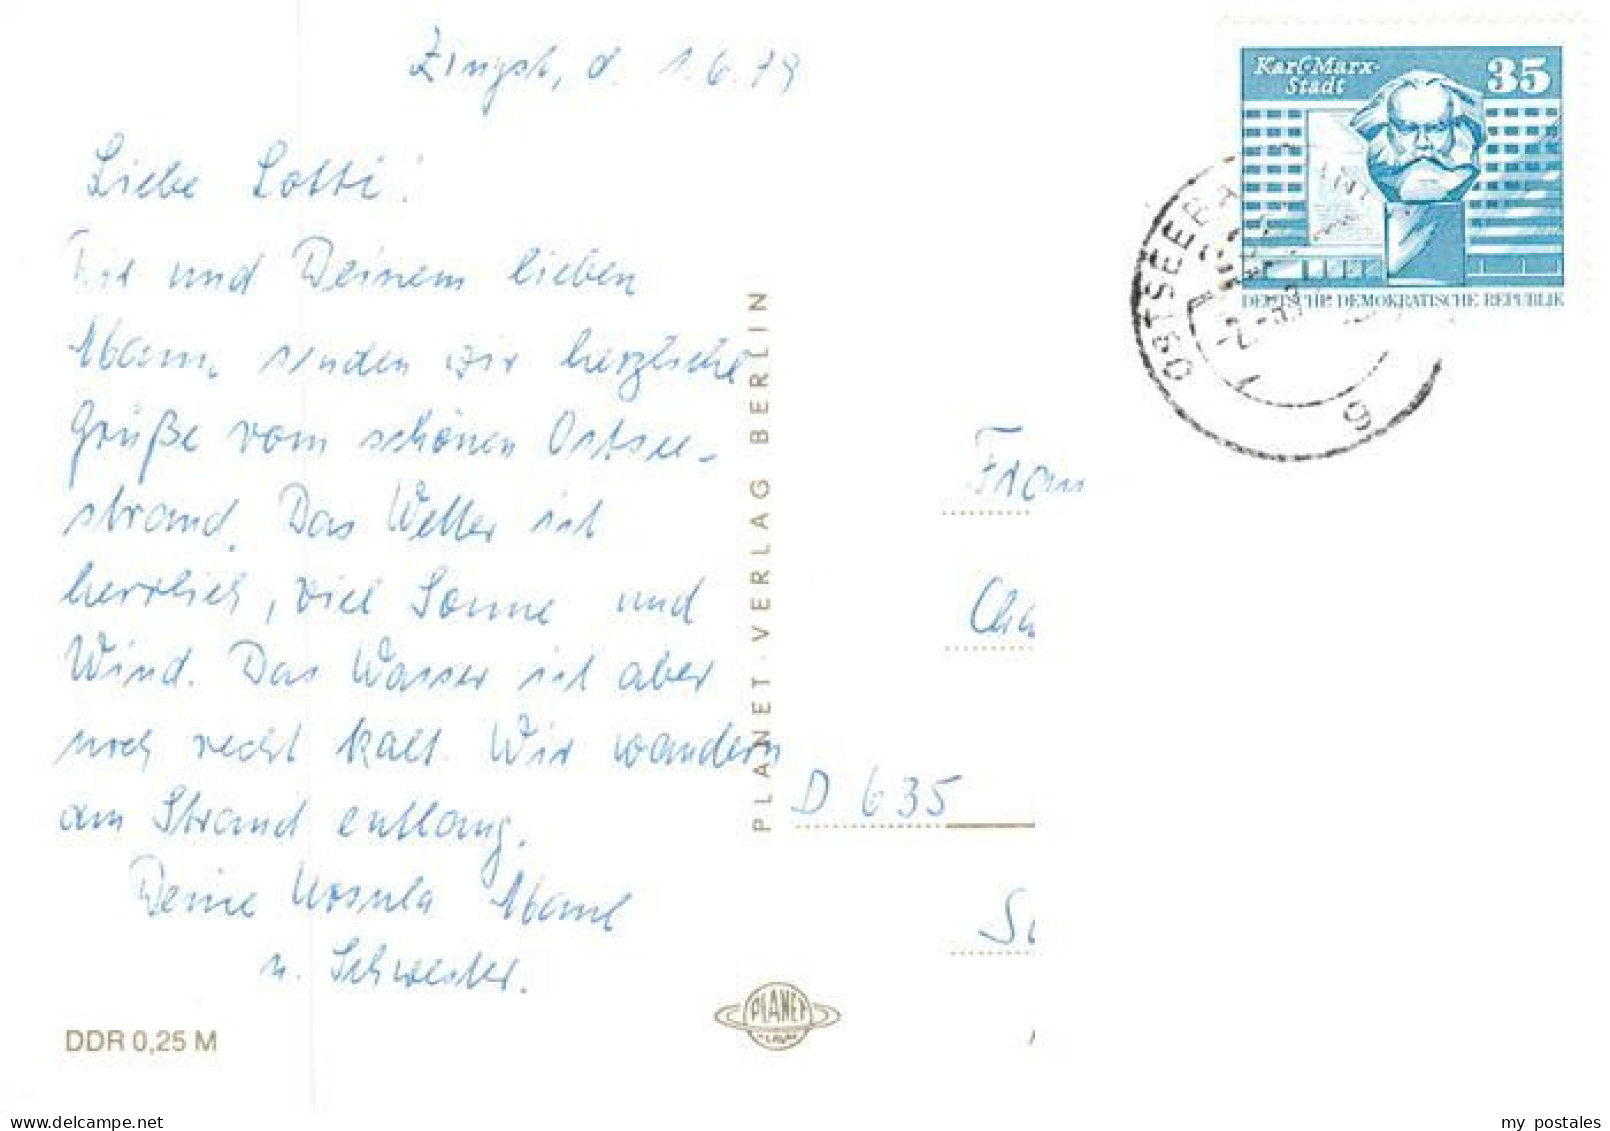 Zingst, d. 1.6.79
Liebe Lotti!
Dir und Deinem lieben
Mann, senden wir herzliche
Grüße vom schönen Ostsee-
strand. Das Wetter ist
herrlich, viel Sonne und
Wind. Das Wasser ist aber
noch recht kalt. Wir wandern
am Strand entlang.
Deine Ursula
u. Schwester.
DDR 0,25 M
PLANET-VERLAG BERLIN
PLANET
Karl-Marx-
Stadt
35
DEUTSCHE DEMOKRATISCHE REPUBLIK
OSTSEEBA
g
Frau
Cha
D 635
So
my postales